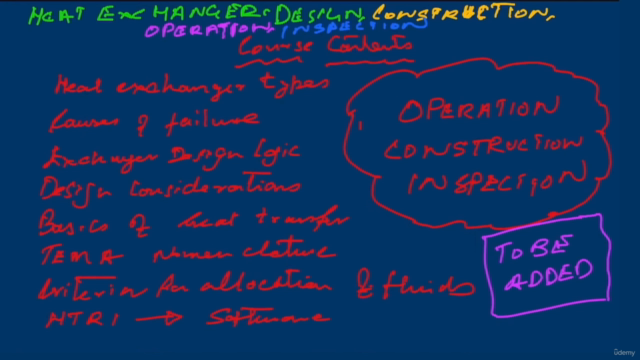 HEAT EXCHANGER: DESIGN, CONSTRUCTION,
OPERATION, INSPECTION
Course Contents
Heat exchanger types
Causes of failure
Exchanger Design Logic
Design Considerations
Basics of heat transfer
TEMA Nomenclature
Criteria for allocation of fluids
HTRI → Software
OPERATION
CONSTRUCTION
INSPECTION
TO BE
ADDED
Udemy